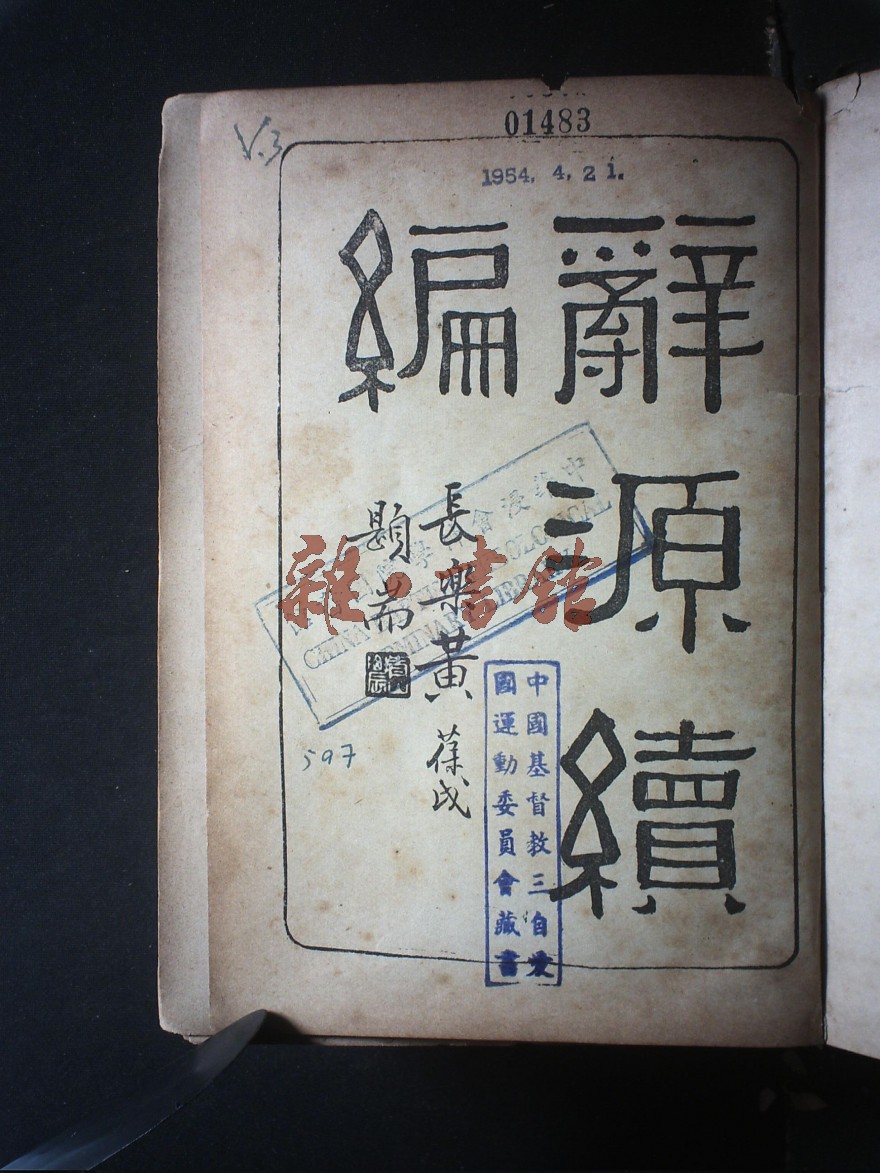 01483
V.3
1954. 4. 21.
辭源續
編
長樂黃葆戉
題耑
中華浸會
CHINA
LIBRARY
597
中國基督教三自愛
國運動委員會藏書
雜·書館